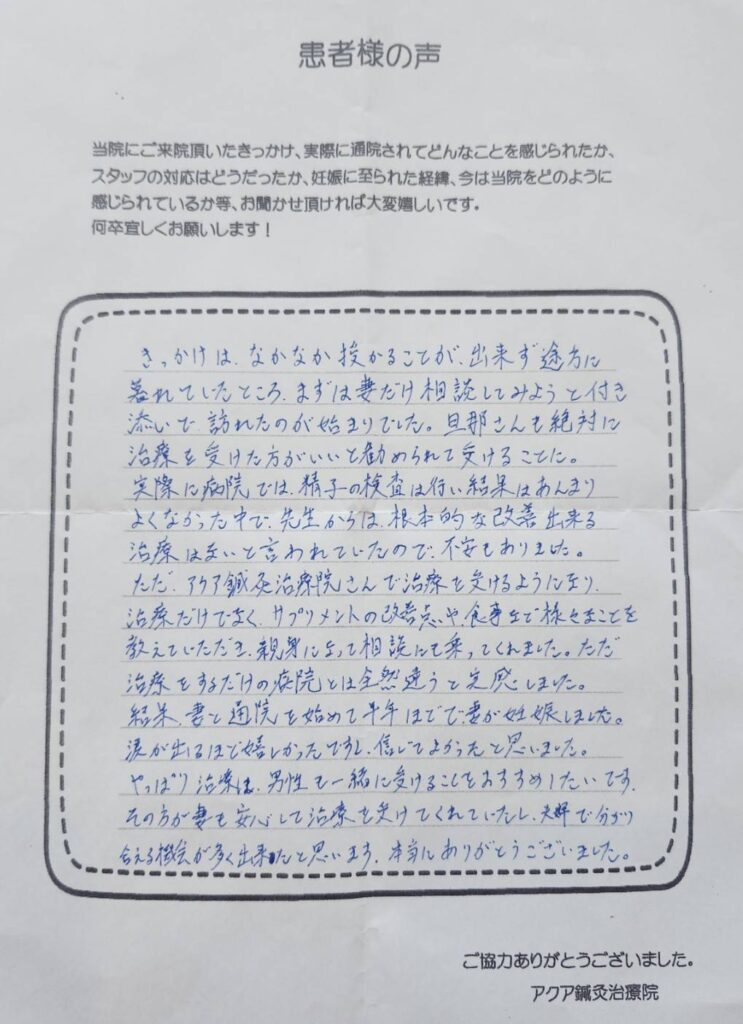 患者様の声
当院にご来院頂いたきっかけ、実際に通院されてどんなことを感じられたか、
スタッフの対応はどうだったか、妊娠に至られた経緯、今は当院をどのように
感じられているか等、お聞かせ頂ければ大変嬉しいです。
何卒宜しくお願いします!
きっかけは、なかなか授かることが、出来ず途方に
暮れていたところ、まずは妻だけ相談してみようと付き
添いで訪れたのが始まりでした。旦那さんも絶対に
治療を受けた方がいいと勧められて受けることに。
実際に病院では、精子の検査は行い結果はあんまり
よくなかった中で、先生からは、根本的な改善出来る
治療はないと言われていたので、不安もありました。
ただ、アクア鍼灸治療院さんで治療を受けるようになり、
治療だけでなく、サプリメントの改善点や、食事などで様々なことを
教えていただき、親身になって相談にも乗ってくれました。ただ
治療をするだけの病院とは全然違うと実感しました。
結果、妻と通院を始めて半年ほどで妻が妊娠しました。
涙が出るほど嬉しかったですし、信じてよかったと思いました。
やっぱり治療は、男性も一緒に受けることをおすすめしたいです。
その方が妻も安心して治療を受けてくれていたし、夫婦で分かり
合える機会が多く出来たと思います。本当にありがとうございました。
ご協力ありがとうございました。
アクア鍼灸治療院